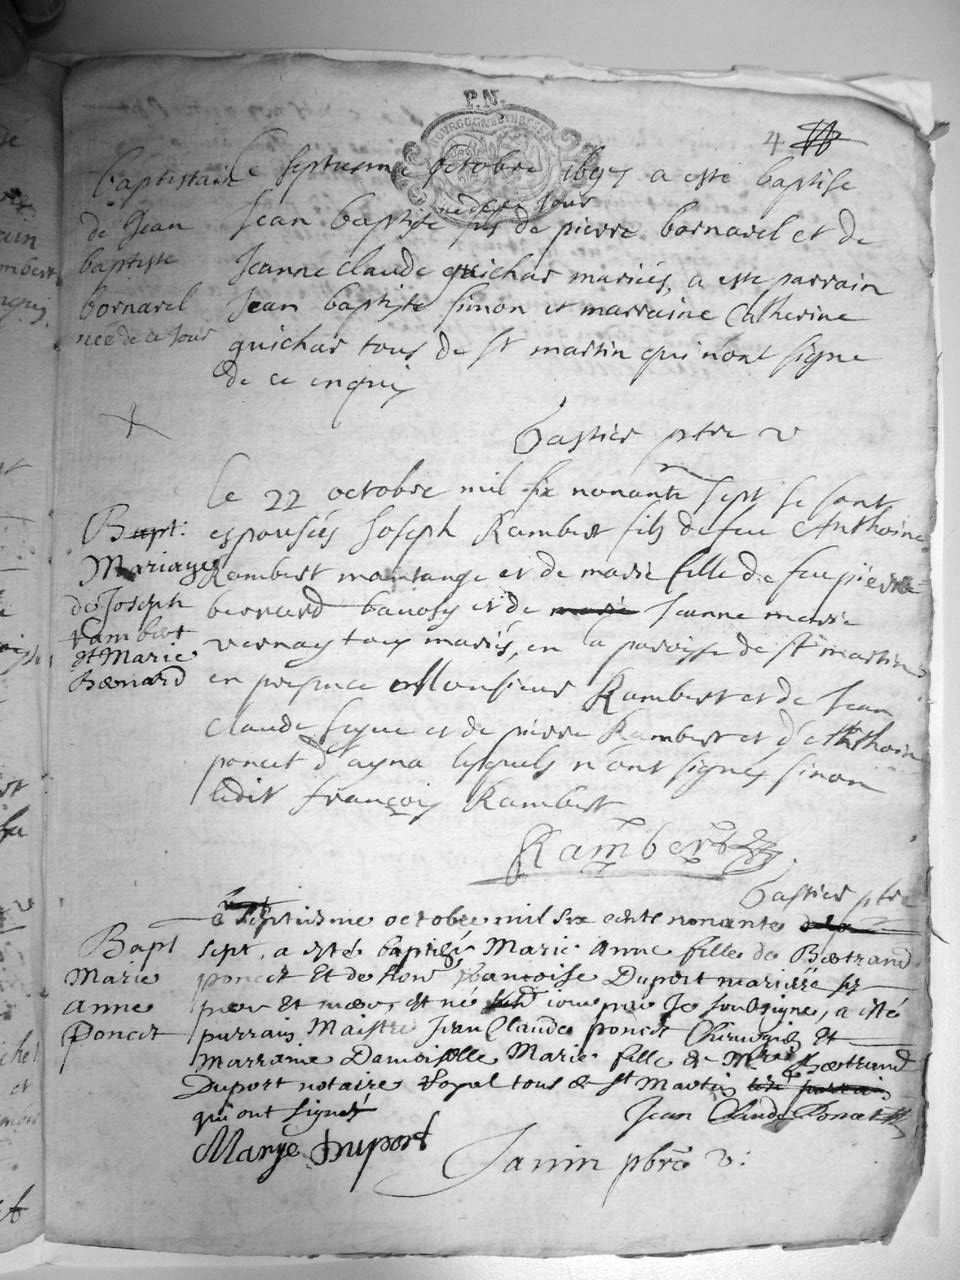 P.N.
4
Baptistaire
de Jean
baptiste
bornarel
née de ce jour
Le septiesme octobre 1697 a esté baptise
né de ce jour
Jean baptiste fils de pierre bornarel et de
Jeanne claude guichar mariés, a este parrain
Jean baptiste simon et marraine Catherine
guichar tous de st martin qui nont signe
de ce enquis
ptre v
Bapt:
Mariage
de Joseph
Rambert
et Marie
Bernard
Le 22 octobre mil six nonante sept se sont
espousés Joseph Rambert fils de feu Anthoine
Rambert et de marie fille de feu pierre
bernard et de Jeanne marie
vernay tous mariés, en la paroisse de st martin
en presence Monsieur Rambert et de Jean
Claude et de pierre Rambert et d'Anthoine
poncet lesquels n'ont signes sinon
ledit françois Rambert
Rambert
ptre
Bapt
Marie
Anne
Poncet
septiesme octobre mil six cents nonante
sept, a esté baptisée Marie Anne fille de Bertrand
poncet Et de françoise Duport mariés ses
pere et mere, Et par Je soubsigne, a esté
parrain Maistre Jean Claude poncet Chirurgien Et
Marraine Damoiselle Marie fille de Mre Bertrand
Duport notaire Royal tous de st Martin
qui ont signés
Jean Claude Poncet
Marye Duport
Janin pbre v: